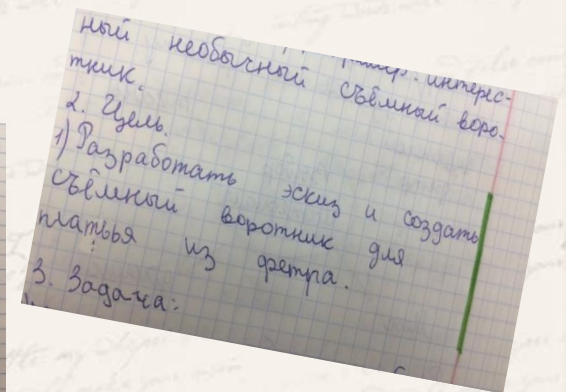 интерес-
ный необычный съёмный ворот-
ник.
2. Цель.
1) Разработать эскиз и создать
съёмный воротник для
платья из фетра.
3. Задача: